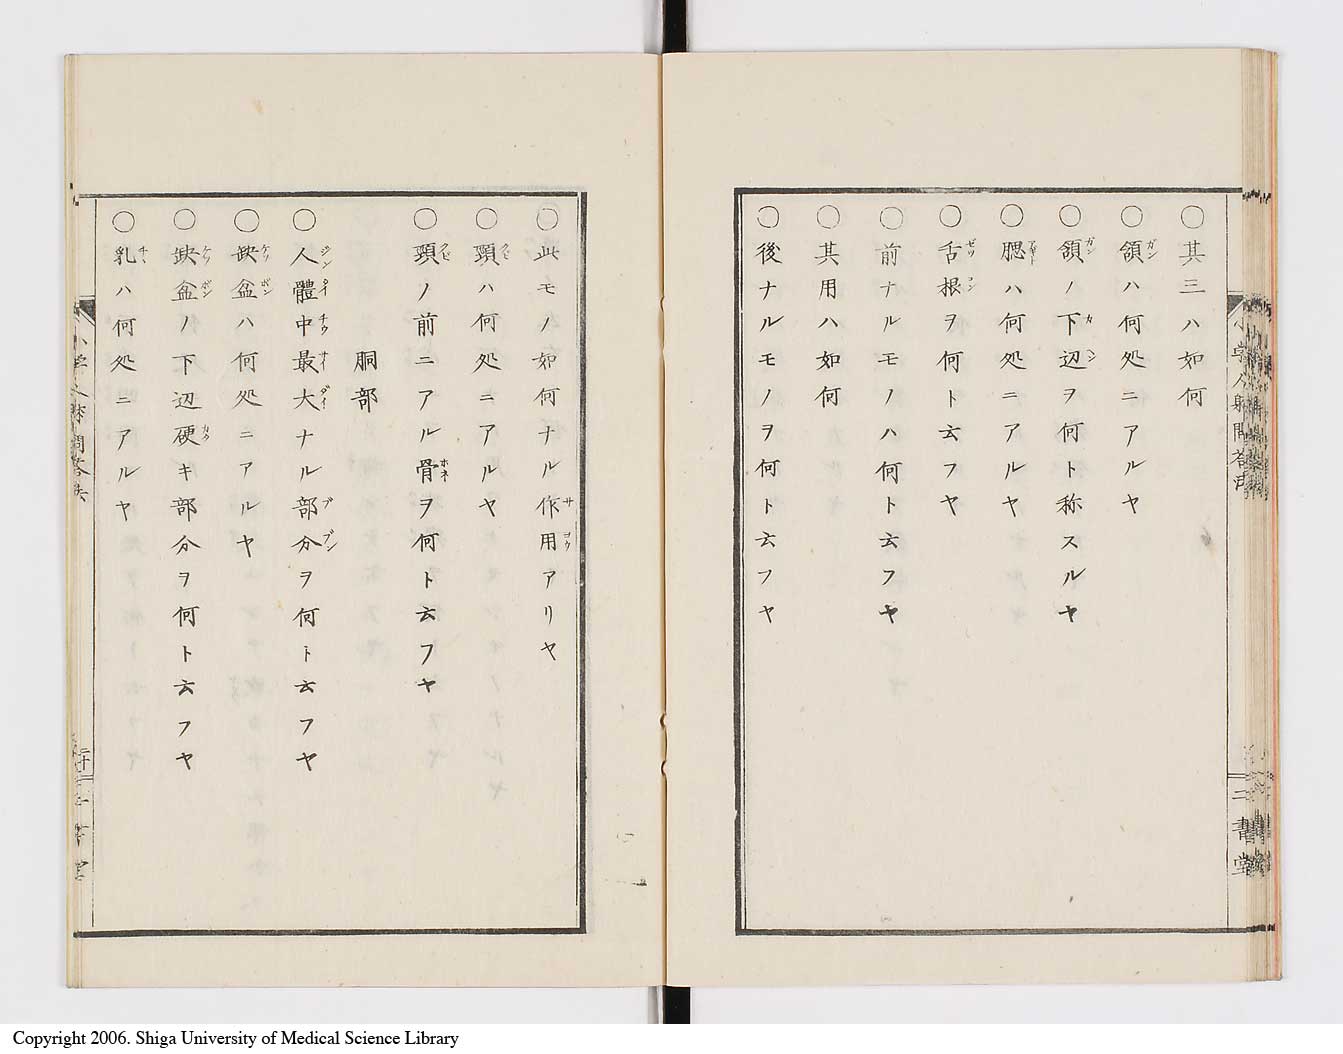 ○其三ハ如何
○頷ハ何処ニアルヤ
○頷ノ下辺ヲ何ト称スルヤ
○腮ハ何処ニアルヤ
○舌根ヲ何ト云フヤ
○前ナルモノハ何ト云フヤ
○其用ハ如何
○後ナルモノヲ何ト云フヤ
二書堂
○此モノ如何ナル作用アリヤ
○頸ハ何処ニアルヤ
○頸ノ前ニアル骨ヲ何ト云フヤ
胴部
○人體中最大ナル部分ヲ何ト云フヤ
○缺盆ハ何処ニアルヤ
○缺盆ノ下辺硬キ部分ヲ何ト云フヤ
○乳ハ何処ニアルヤ
Copyright 2006. Shiga University of Medical Science Library